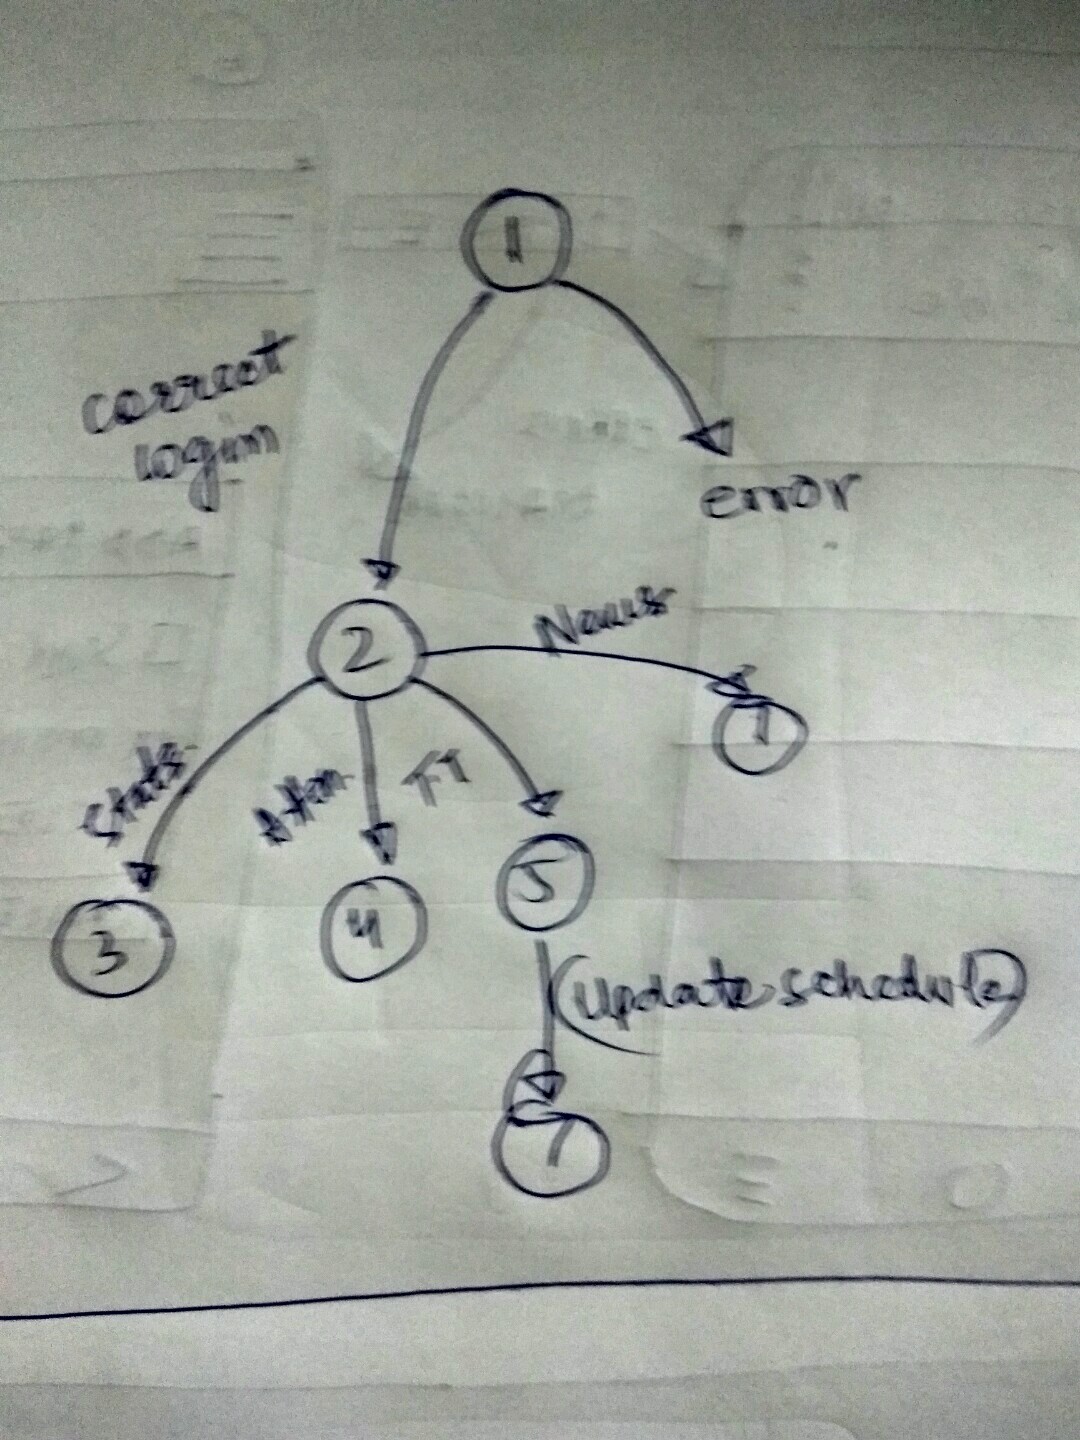 1
correct
login
error
2
News
1
Stats
Atten
TT
3
4
5
(update schedule)
7